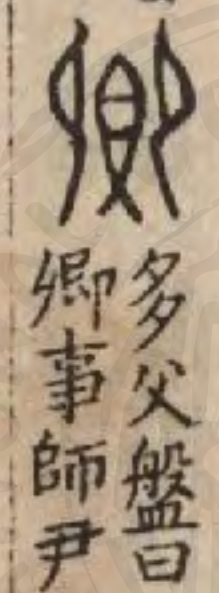 卿
多父盤曰
卿事師尹